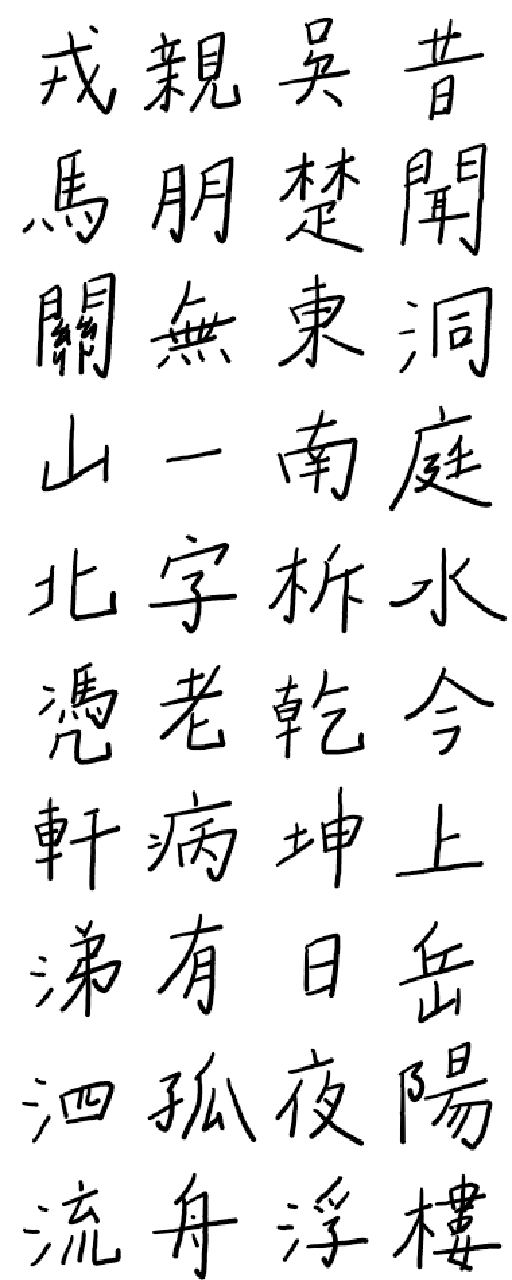 昔聞洞庭水今上岳陽樓
吳楚東南柝乾坤日夜浮
親朋無一字老病有孤舟
戎馬關山北凴軒涕泗流